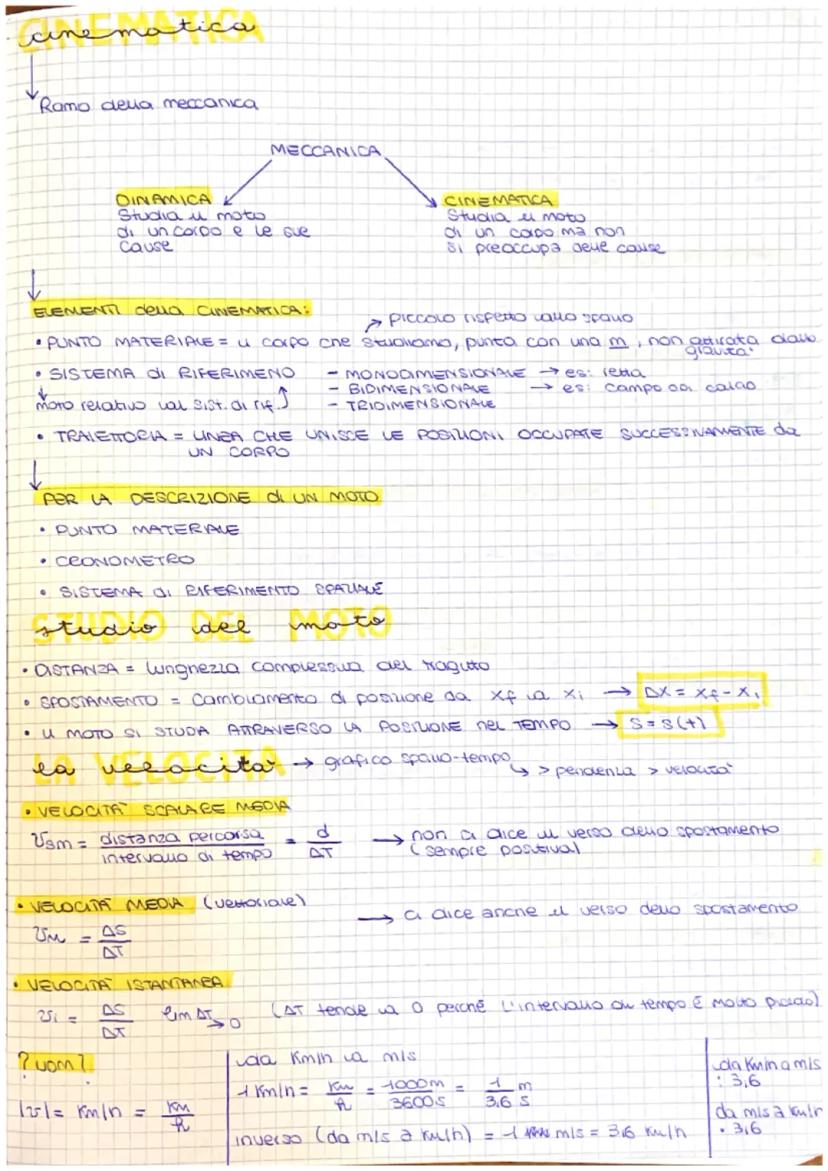 CINEMATICA
cinematica
Ramo della meccanica
MECCANICA
DINAMICA
Studia il moto
di un corpo e le sue
cause
CINEMATICA
Studia il moto
di un corpo ma non
si preoccupa delle cause
ELEMENTI della CINEMATICA:
piccolo rispetto allo spazio
• PUNTO MATERIALE = il corpo che studiamo, punto con una m, non attirata dalla
gravità
• SISTEMA di RIFERIMENO
- MONODIMENSIONALE → es: retta
- BIDIMENSIONALE → es: campo da calcio
- TRIDIMENSIONALE
moto relativo al sist. di rif.
• TRAIETTORIA = LINEA CHE UNISCE LE POSIZIONI OCCUPATE SUCCESSIVAMENTE da
UN CORPO
PER LA DESCRIZIONE di UN MOTO
• PUNTO MATERIALE
• CRONOMETRO
• SISTEMA di RIFERIMENTO SPAZIALE
STUDIO DEL MOTO
studio del moto
• DISTANZA = lunghezza complessiva del tragitto
• SPOSTAMENTO = cambiamento di posizione da xf a xi → ΔX = Xf - Xi
• il MOTO SI STUDIA ATTRAVERSO LA POSIZIONE nel TEMPO → S = S(t)
LA VELOCITA
la velocità → grafico spazio-tempo
↳ > pendenza > velocità
• VELOCITÀ SCALARE MEDIA
Vsm = distanza percorsa / intervallo di tempo = d / ΔT → non ci dice il verso dello spostamento
(sempre positiva)
• VELOCITÀ MEDIA (vettoriale)
→ ci dice anche il verso dello spostamento
Vm = ΔS / ΔT
• VELOCITÀ ISTANTANEA
Vi = ΔS / ΔT lim ΔT → 0 (ΔT tende a 0 perché l'intervallo di tempo è molto piccolo)
? UDM ?
|v| = Km/h = Km / h
da Km/h a m/s
1 Km/h = Km / h = 1000m / 3600s = 1 / 3,6 m / s
inverso (da m/s a Km/h) = 1 m/s = 3,6 Km/h
da Km/h a m/s
: 3,6
da m/s a Km/h
• 3,6